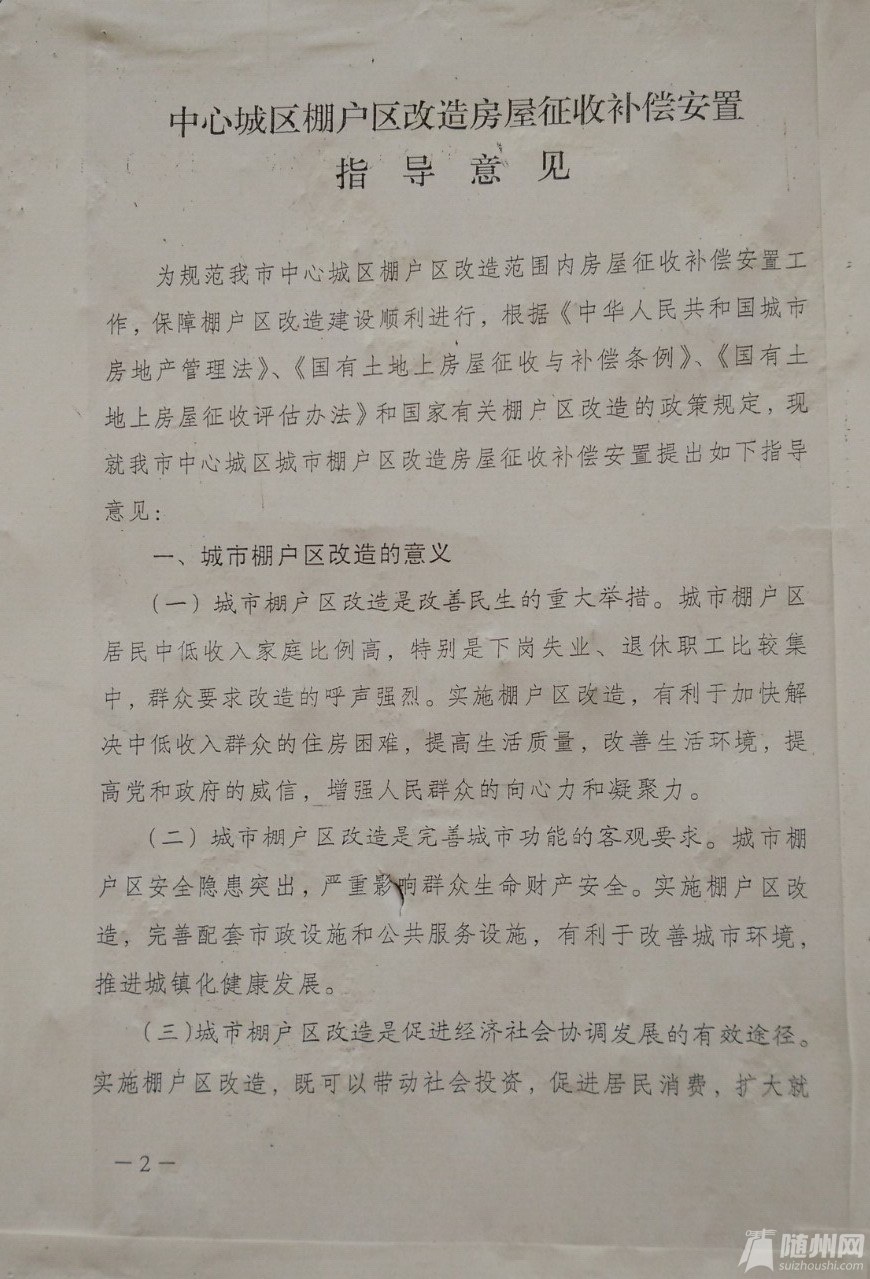 中心城区棚户区改造房屋征收补偿安置
指导意见
为规范我市中心城区棚户区改造范围内房屋征收补偿安置工
作，保障棚户区改造建设顺利进行，根据《中华人民共和国城市
房地产管理法》、《国有土地上房屋征收与补偿条例》、《国有土
地上房屋征收评估办法》和国家有关棚户区改造的政策规定，现
就我市中心城区城市棚户区改造房屋征收补偿安置提出如下指导
意见：
一、城市棚户区改造的意义
（一）城市棚户区改造是改善民生的重大举措。城市棚户区
居民中低收入家庭比例高，特别是下岗失业、退休职工比较集
中，群众要求改造的呼声强烈。实施棚户区改造，有利于加快解
决中低收入群众的住房困难，提高生活质量，改善生活环境，提
高党和政府的威信，增强人民群众的向心力和凝聚力。
（二）城市棚户区改造是完善城市功能的客观要求。城市棚
户区安全隐患突出，严重影响群众生命财产安全。实施棚户区改
造，完善配套市政设施和公共服务设施，有利于改善城市环境，
推进城镇化健康发展。
（三）城市棚户区改造是促进经济社会协调发展的有效途径。
实施棚户区改造，既可以带动社会投资，促进居民消费，扩大就
—2—
随州网
suizhoushi.com